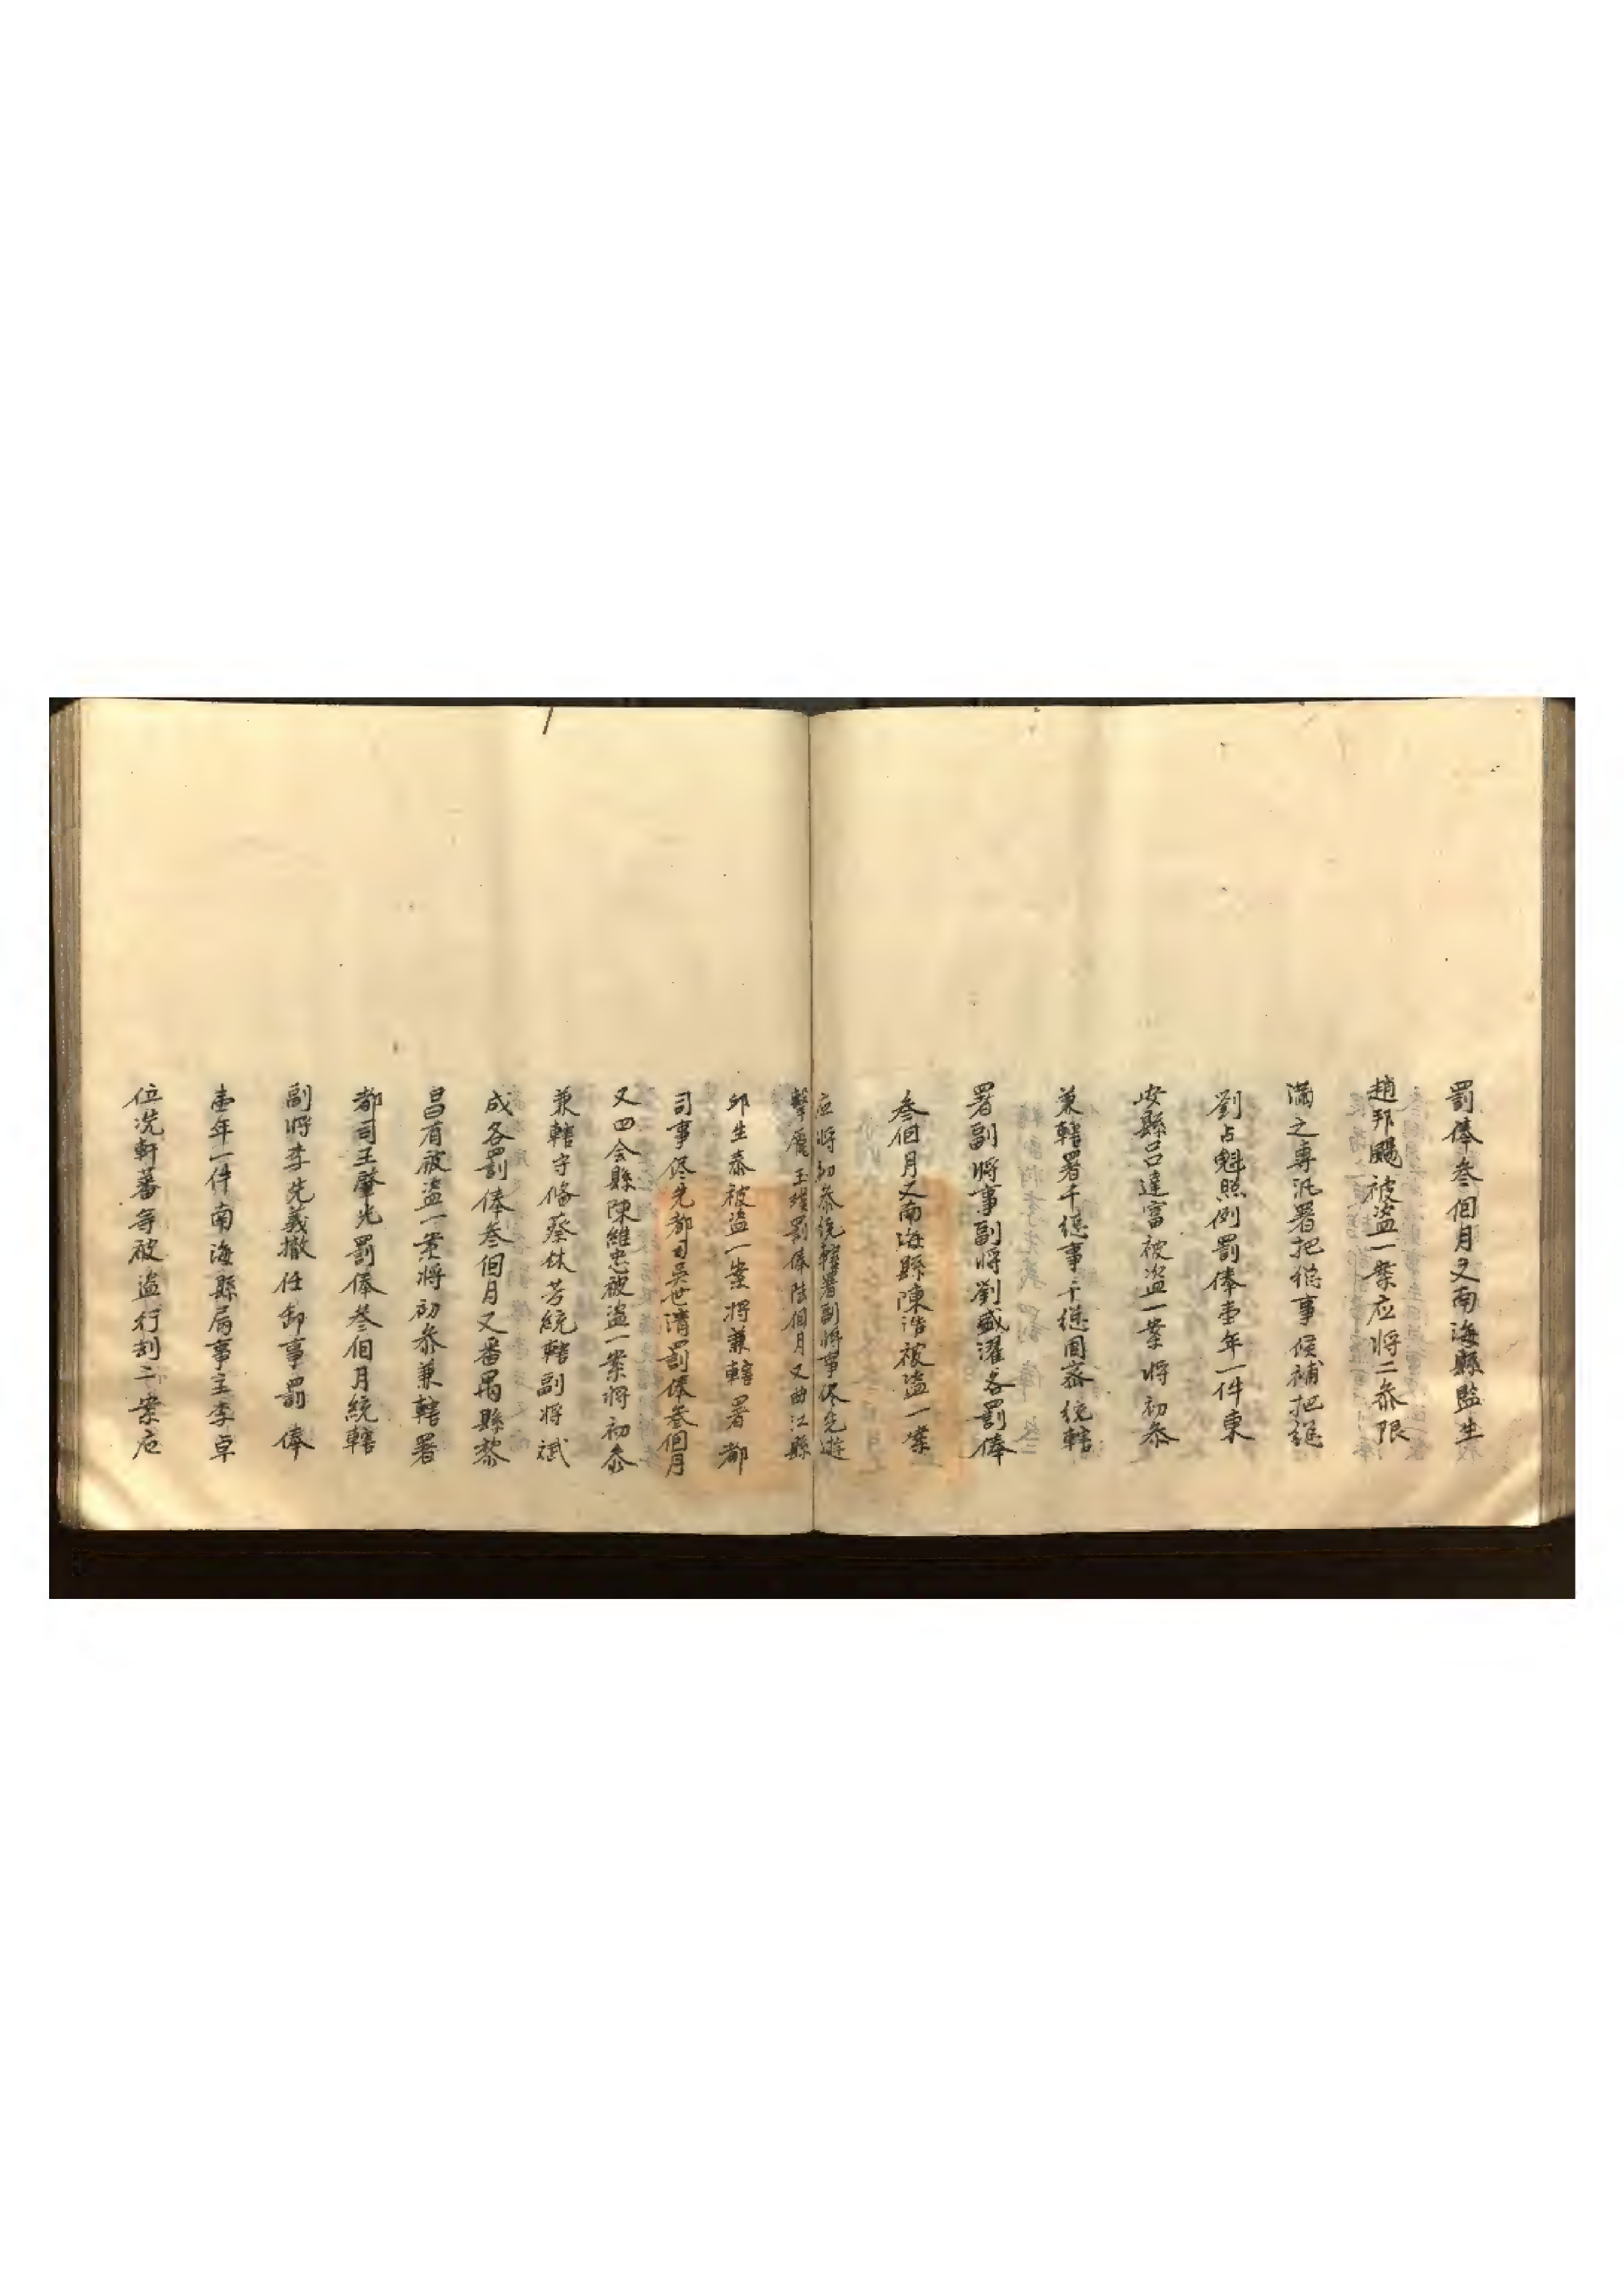 罰俸叁個月又南海縣監生
趙邦颺被盜一案应将二叅限
滿之專汛署把總事候補把總
劉占魁照例罰俸壹年一件東
安縣呂達富被盜一案将初叅
兼轄署千總事千總周齋统轄
署副将事副将劉盛濯各罰俸
叁個月又南海縣陳浩被盜一案
应将初叅统轄署副将事侭先遊
擊龐玉 罰俸陸個月又曲江縣
邱生泰被盜一案将兼轄署都
司事侭先都司吳世清罰俸叁個月
又四会縣陳維忠被盜一案将初叅
兼轄守俻蔡林芳統轄副将斌
成各罰俸叁個月又番禺縣黎
昌有被盜一案将初叅兼轄署
都司王肇光罰俸叁個月統轄
副将李先義撤任卸事罰俸
壹年一件南海縣局事主李卓
位冼軒蕃等被盜行刦二案应